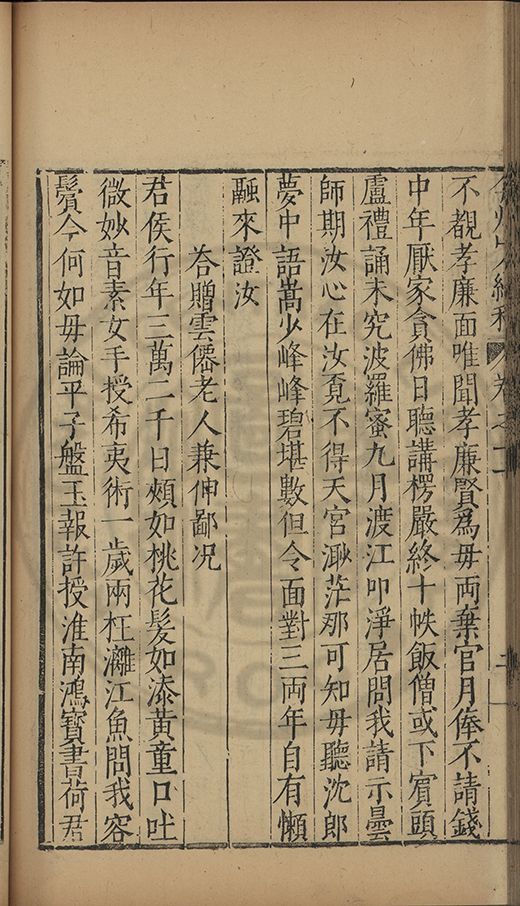 不覩孝廉面唯聞孝廉賢為母兩棄官月俸不請錢
中年厭家貪佛日聽講楞嚴終十帙飯僧或下賓頭
盧禮誦未究波羅蜜九月渡江叩淨居問我請示曇
師期汝心在汝覔不得天宮渺茫那可知毋聽沈郎
夢中語嵩少峰峰碧堪數但令面對三兩年自有懶
融來證汝
荅贈雲僊老人兼伸鄙况
君侯行年三萬二千日頰如桃花髮如漆黃童口吐
微妙音素女手授希夷術一歲兩枉灕江魚問我容
鬢今何如毋論平子盤玉報許授淮南鴻寶書荷君